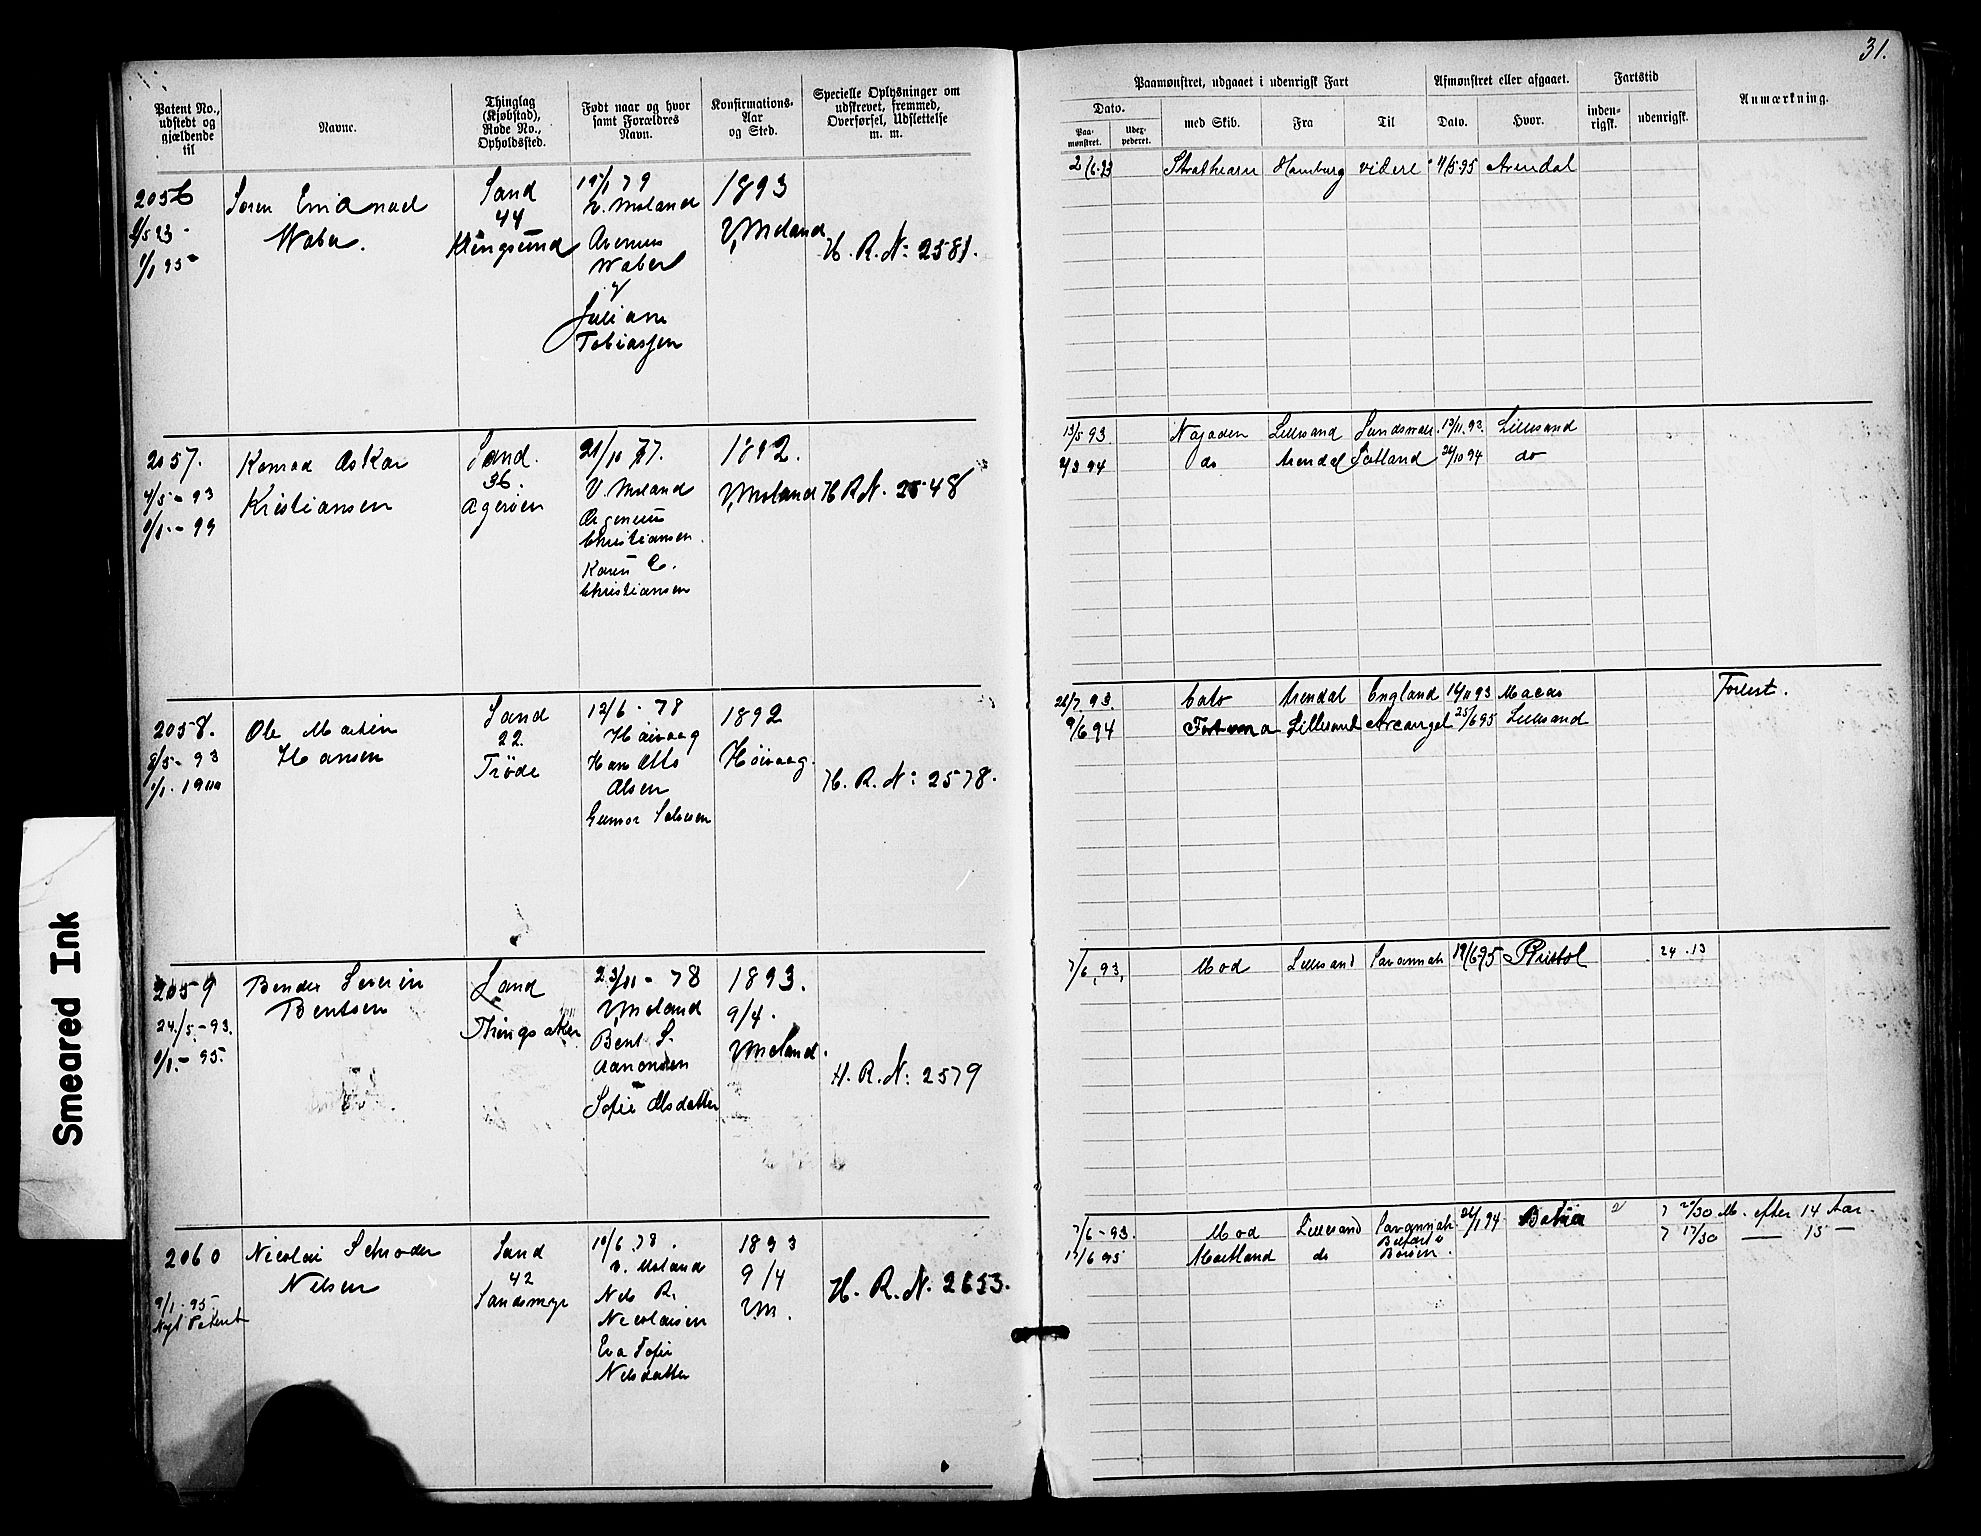 31.
Patent No., udstedt og gjældende til
Navne.
Thinglag (Kjøbstad), Rode No., Opholdssted.
Født naar og hvor samt Forældres Navn.
Konfirmations-Aar og Sted.
Specielle Oplysninger om udskrevet, fremmed, Overførsel, Udslettelse m. m.
Paamønstret, udgaaet i udenrigsk Fart
Dato.
Paamønstret.
Udexpederet.
med Skib.
Fra
Til
Afmønstret eller afgaaet.
Dato.
Hvor.
Fartstid
indenrigsk.
udenrigsk.
Anmærkning.
2056
1/1 95
Søren Emanuel
Waber.
Sand
44
Klingsund
V. Moland
Waber
Juliane
Tobiassen
1893
V. Moland
H. R. N: 2581.
2/6-93 Strathearn Hamburg videre 4/5 95 Arendal
2057.
4/5-93
1/1-99
Konrad Oskar
Kristiansen
Sand.
36.
Agerøen
21/10 77.
V. Moland
Christiansen.
Karen C.
Christiansen
1892.
V. Moland
H R N. 2548
13/5 93 Najaden Lillesand 13/11.93. Lillesand
do Arendal 24/10 94 do
2058.
8/5-93
1/1-1900
Ole Martin
Hansen
Sand
22.
Trøde
12/6-78
Høivaag
Hans Otto
Olsen
Gunvor Salvesen
1892
Høivaag.
H. R. N: 2578.
22/7 93. Cato Arendal England 14/11 93 Macao Forlist.
9/6 94 Fortuna Lillesand Arcangel 25/6 95 Lillesand
2059
24./5.-93.
1/1.-95.
Bender Severin
Bentsen
Sand
Thingsaker
23/11-78
V. Moland
Bent S.
Aanonsen
Sofie Olsdatter
1893.
9/4.
V. Moland.
H. R. N: 2579
7/6.93, Mod Lillesand Savannah 19/6-95 Bristol 24-13
2060
9/1-95
Nyt Patent
Nicolai Schrøder
Nilsen
Sand
42
Sandsmyr
19/6 78.
V. Moland
Nils R.
Nicolaisen
Eva Sofie
Nilsdatter
1893
9/4
V. M.
H. R. N. 2653.
7/6-93. Mod Lillesand Savannah 26/1 94 7 29/30 M. efter 14 Aar.
17/6 95 Maitland do 7 17/30 — 15 —
Smeared Ink